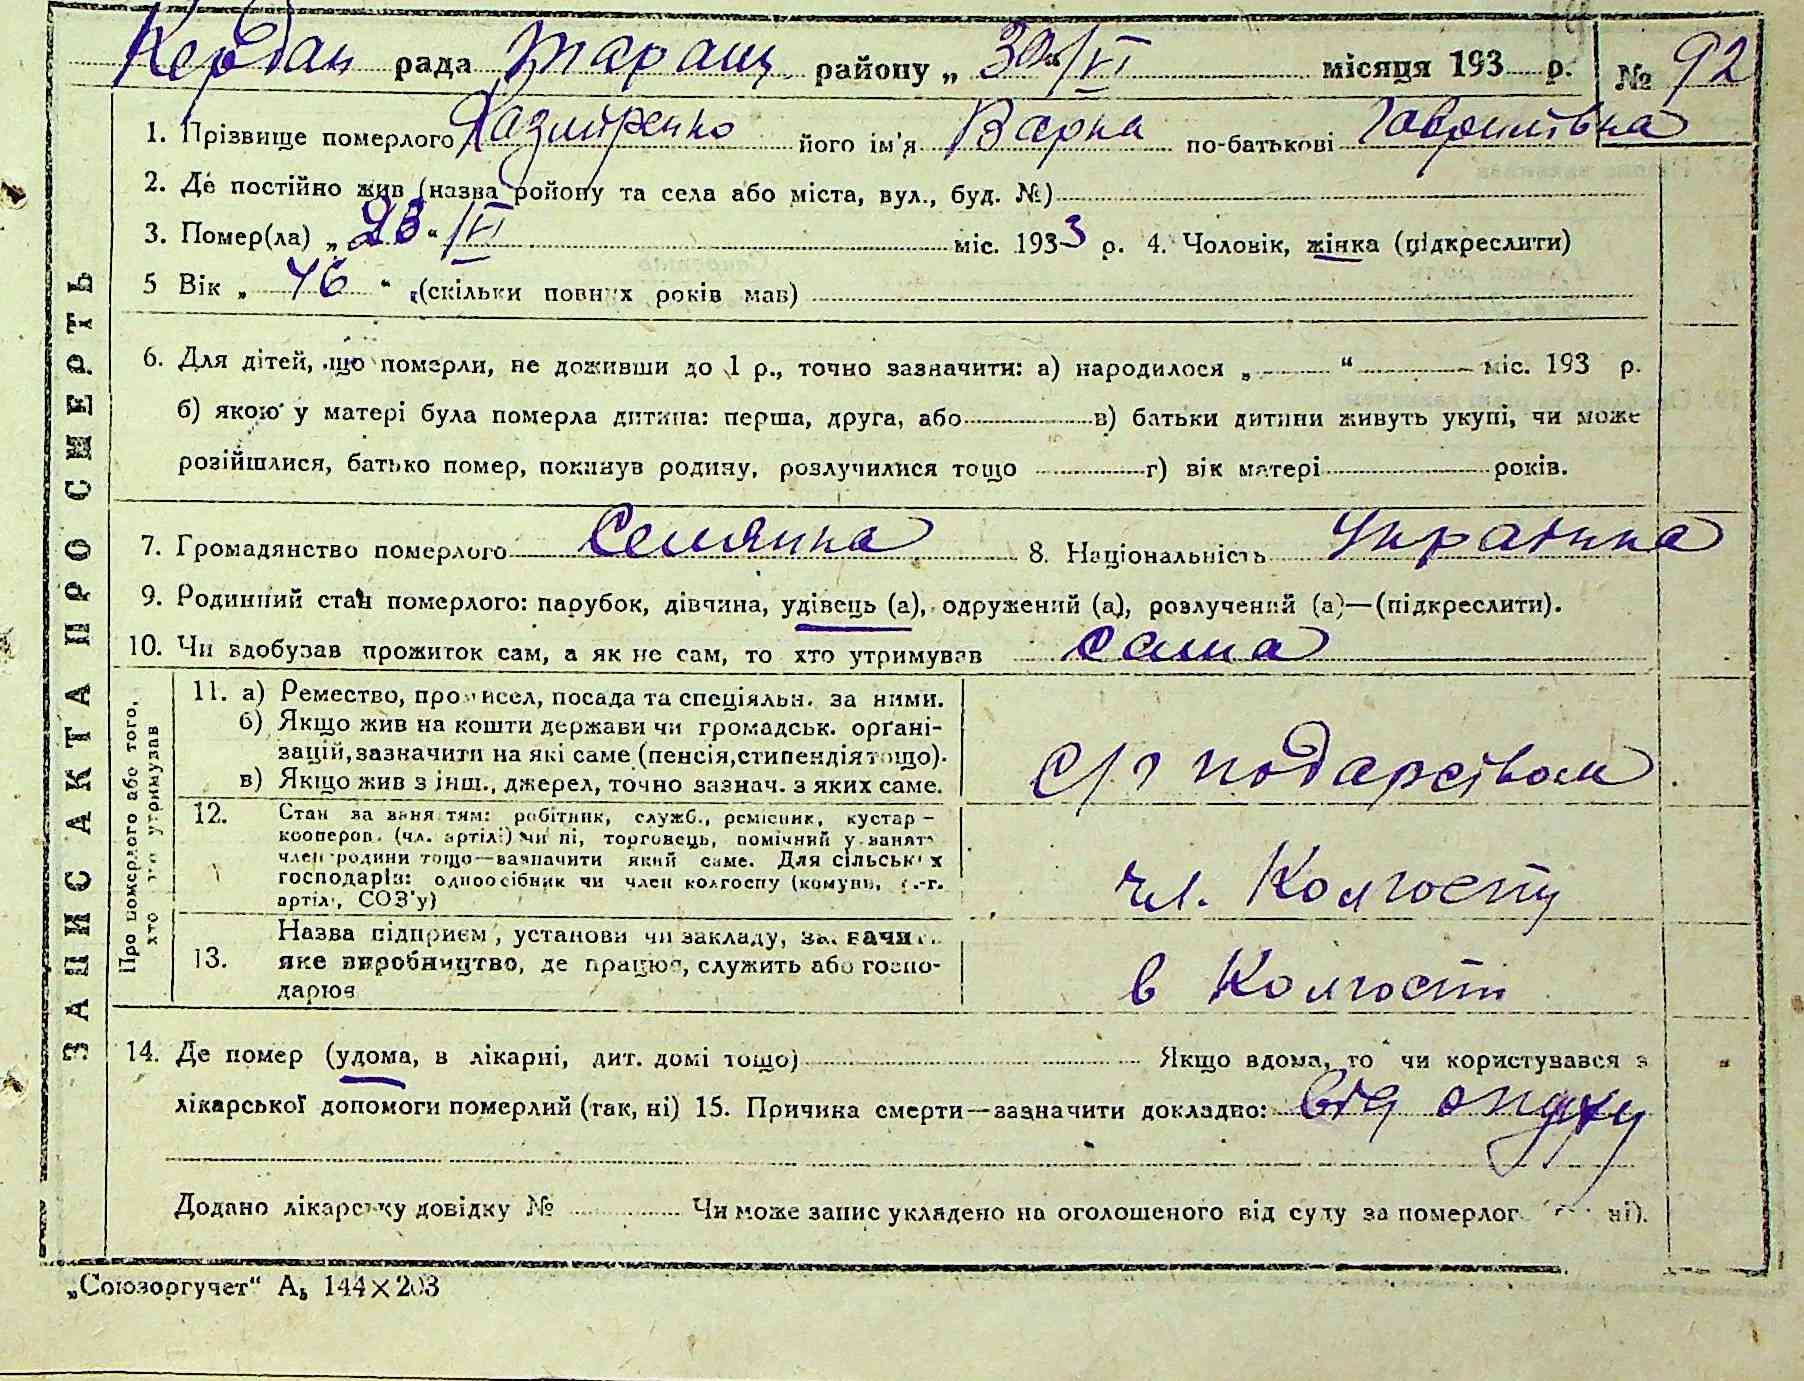 Кердан рада Таращ району „ 30 “ /VI місяця 193 р. № 92
1. Прізвище померлого його ім'я Варка по-батькові Гаврилівна
2. Де постійно жив (назва ройону та села або міста, вул., буд. №)
3. Помер(ла) „ 23 “ /VI міс. 1933 р. 4. Чоловік, жінка (підкреслити)
5 Вік „ 46 “ (скільки повних років мав)
6. Для дітей, що померли, не доживши до 1 р., точно зазначити: а) народилося „ “ міс. 193 р.
б) якою у матері була померла дитина: перша, друга, або в) батьки дитини живуть укупі, чи може
розійшлися, батько помер, покинув родину, розлучилися тощо г) вік матері років.
7. Громадянство померлого Селянка 8. Національність Українка
9. Родинний стан померлого: парубок, дівчина, удівець (а), одружений (а), розлучений (а)—(підкреслити).
10. Чи здобував прожиток сам, а як не сам, то хто утримував сама
ЗАПИС АКТА ПРО СМЕРТЬ
Про померлого або того, хто його утримував
11. а) Ремество, промисел, посада та спеціяльн. за ними.
б) Якщо жив на кошти держави чи громадськ. органі-
зацій, зазначити на які саме (пенсія, стипендія тощо).
в) Якщо жив з інш., джерел, точно зазнач. з яких саме.
с/г подарством
12. Стан за заняттям: робітник, служб., ремісник, кустар—
коопероп. (чл. артілі) чи ні, торговець, помічний у занят.
член родини тощо—зазначити який саме. Для сільських
господарів: одноосібник чи член колгоспу (комуни, с.-г.
артілі, СОЗ'у)
чл. Колгоспу
13. Назва підприєм., установи чи закладу, зазначити
яке виробництво, де працює, служить або госпо-
дарює
в Колгоспі
14. Де помер (удома, в лікарні, дит. домі тощо) Якщо вдома, то чи користувався з
лікарської допомоги померлий (так, ні) 15. Причина смерти—зазначити докладно: від опуху
Додано лікарську довідку № Чи може запис укладено на оголошеного від суду за померлого ні).
„Союзоргучет“ А₅ 144×203